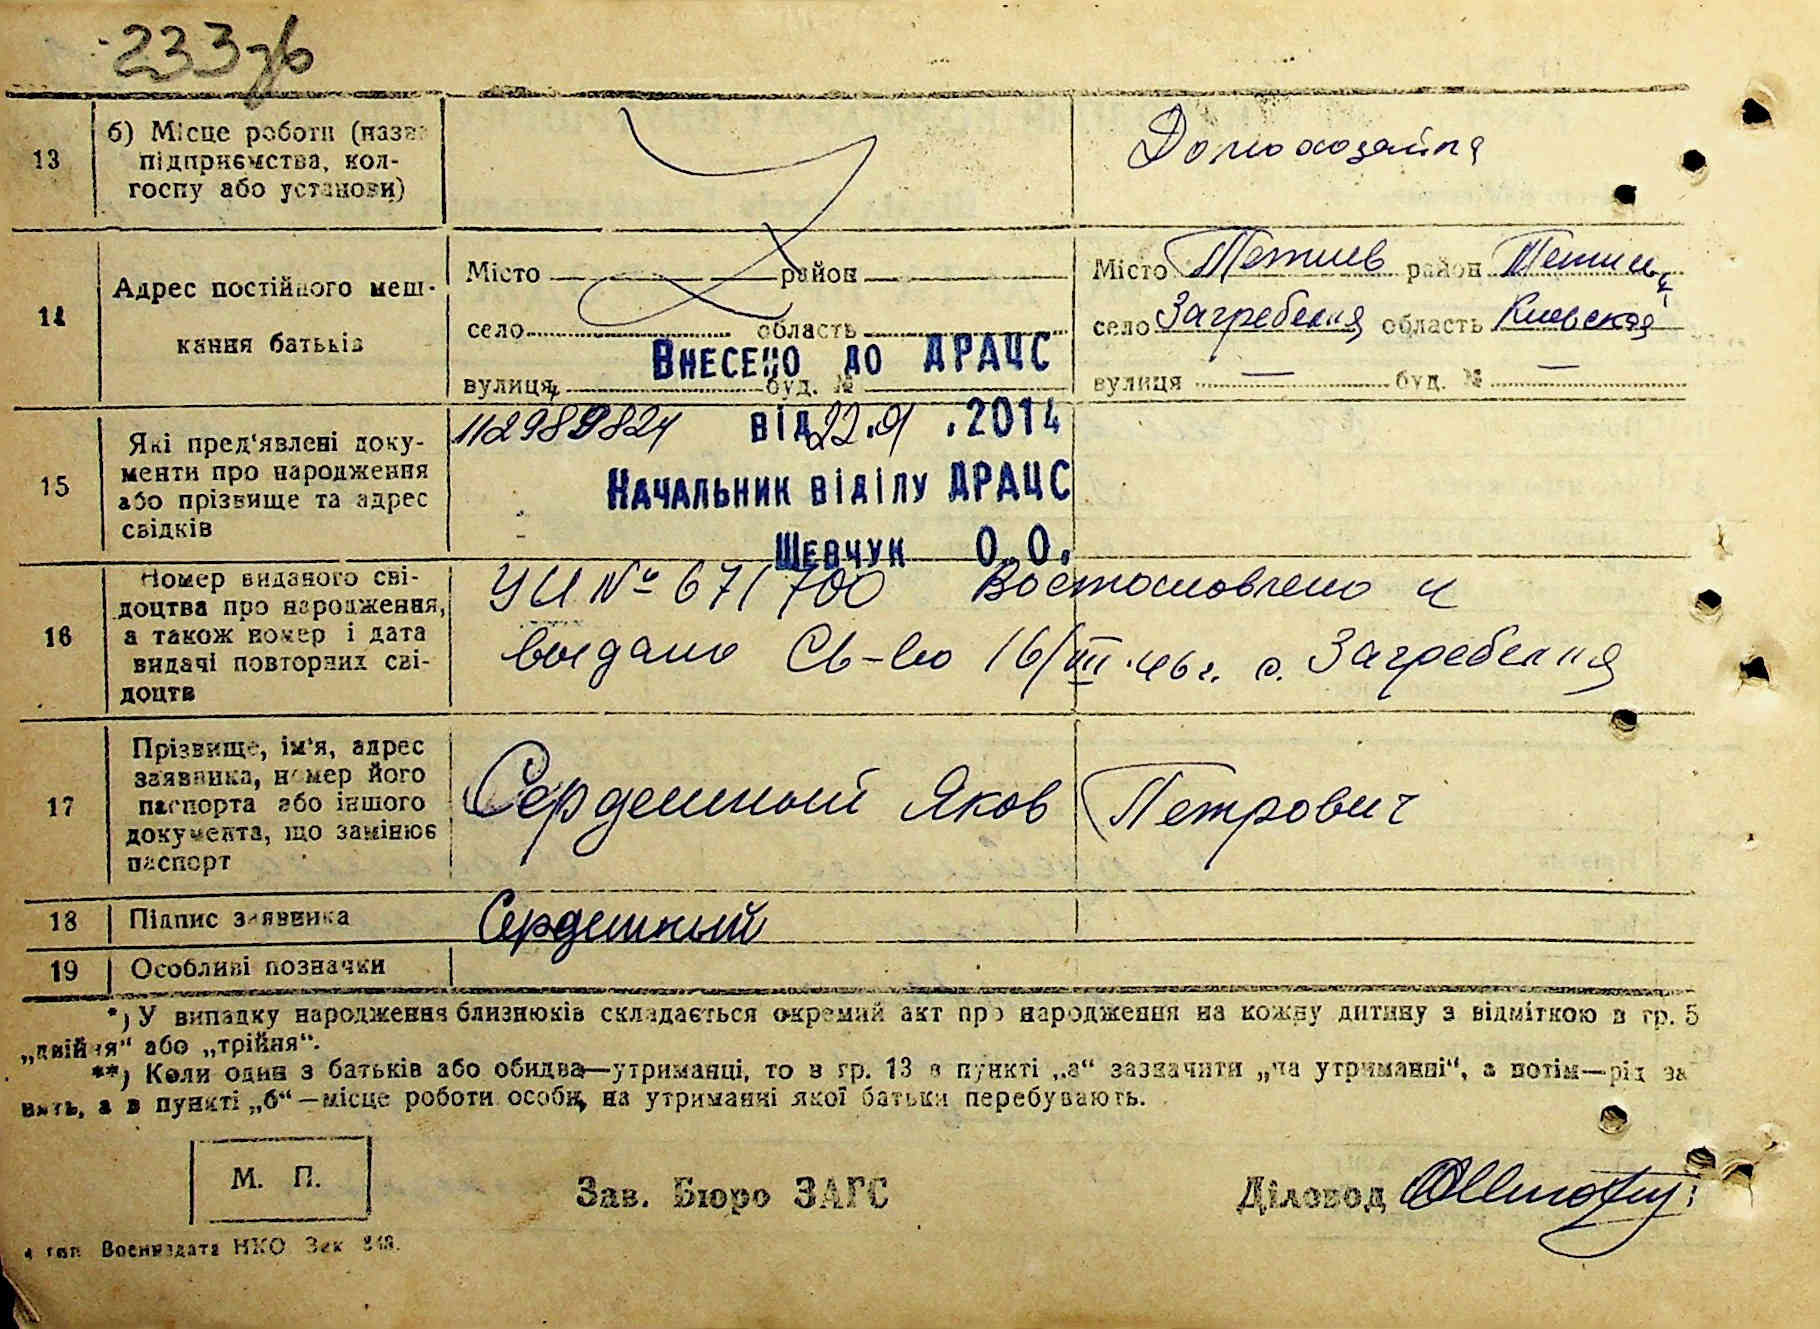 233зв
13
б) Місце роботи (назва
підприємства, кол-
госпу або установи)
Домохозайка
14
Адрес постійного меш-
кання батьків
Місто район
село область
вулиця буд. №
Місто Тетиев район Тетиев
село Загребелля область Киевская
вулиця — буд. № —
Внесено до ДРАЦС
від 22.01.2014
Начальник відділу ДРАЦС
Шевчук О.О.
15
Які пред'явлені доку-
менти про народження
або прізвище та адрес
свідків
16
Номер виданого сві-
доцтва про народження,
а також номер і дата
видачі повторних сві-
доцтв
УИ № 671700 Востановлено и
выдано Св-во 16/III.46г. с. Загребелля
17
Прізвище, ім'я, адрес
заявника, номер його
паспорта або іншого
документа, що замінює
паспорт
Сердешный Яков Петрович
18
Підпис заявника
Сердешный
19
Особливі позначки
*) У випадку народження близнюків складається окремий акт про народження на кожну дитину з відміткою в гр. 5
„двійня“ або „трійня“.
**) Коли один з батьків або обидва—утриманці, то в гр. 13 в пункті „а“ зазначити „на утриманні“, а потім—рід за
нять, а в пункті „б“—місце роботи особи, на утриманні якої батьки перебувають.
М. П.
Зав. Бюро ЗАГС
Діловод
тип. Воениздата НКО Зак 343.